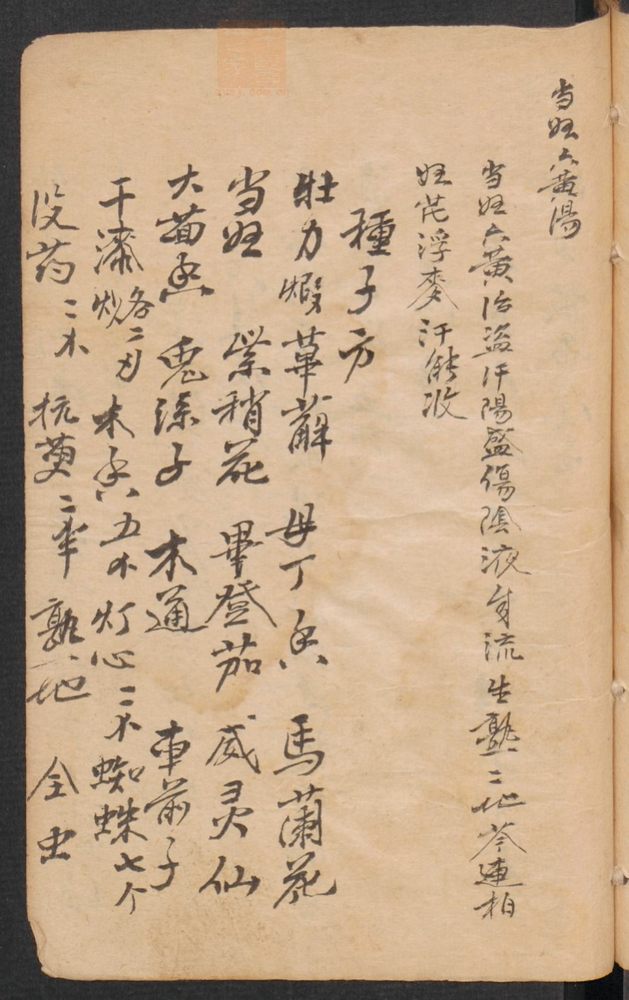 当归六黄湯
当归六黄治盗汗陽盛傷陰液自流生熟二地芩連柏
归芪浮麥汗能收
種子方
牡力煅 萆薢 母丁香 馬蘭花
当归 紫稍花 畢登茄 威灵仙
大茴香 兎絲子 木通 車前子
干漆炒各二刃 木香五个 灯心二个 蜘蛛七个
没药二个 二 熟地 全虫